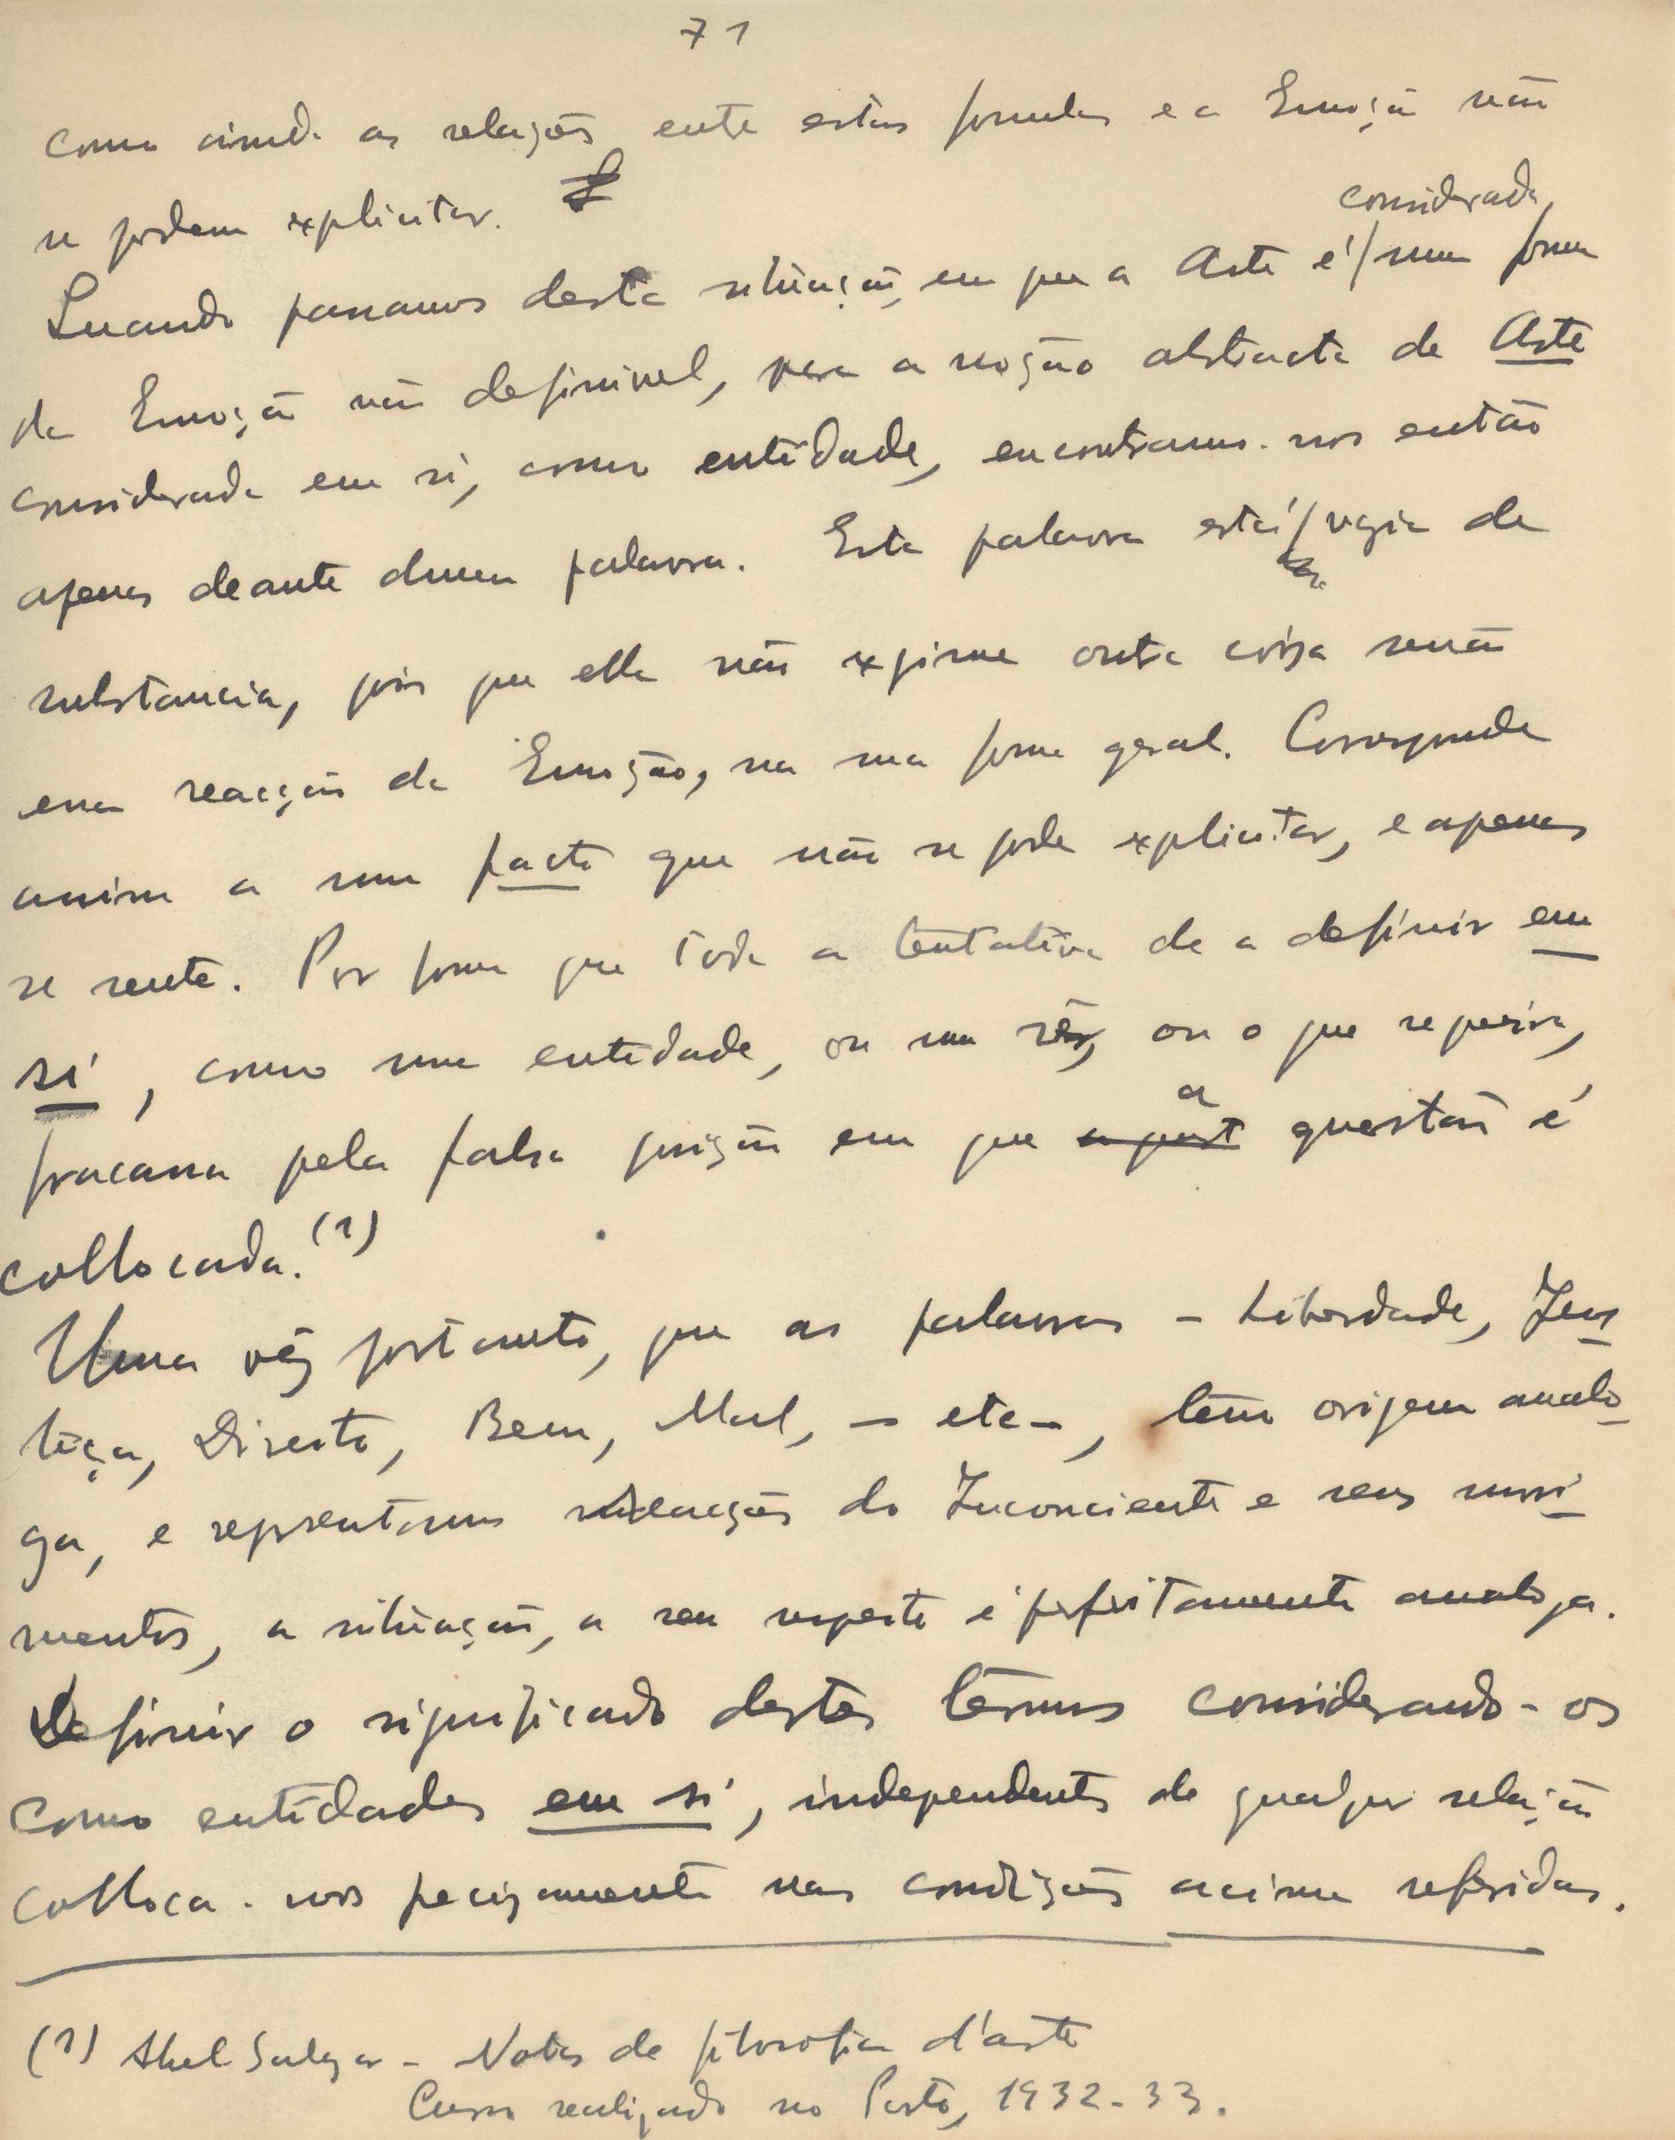 71
como ainda as relações entre estas formulas e a Emoção não
se podem explicitar.
considerada
Quando passamos desta situação, em que a Arte é / uma forma
da Emoção não definivel, para a noção abstracta de Arte
considerada em si, como entidade, encontramos-nos então
apenas deante duma palavra. Esta palavra está / vazia de
substancia, pois que ella não exprime outra coisa senão
essa reacção da Emoção, na sua forma geral. Corresponde
assim a um facto que não se pode explicitar, e apenas
se sente. Por forma que toda a tentativa de a definir em
si, como uma entidade, ou um sêr, ou o que se queira,
a
fracassa pela falsa posição em que a post questão é
collocada. (1)
Uma vêz portanto, que as palavras - Liberdade, Jus
tiça, Direito, Bem, Mal, - etc -, têm origem analo
ga, e representam reacções do Inconciente e seus movi
mentos, a situação, a seu respeito é perfeitamente analoga.
Definir o significado destes têrmos considerando-os
como entidades em si, independentes de qualquer relação
colloca-nos precizamente nas condições acima referidas.
(1) Abel Salazar - Notas de filosofia d'arte
Curso realizado no Porto, 1932-33.